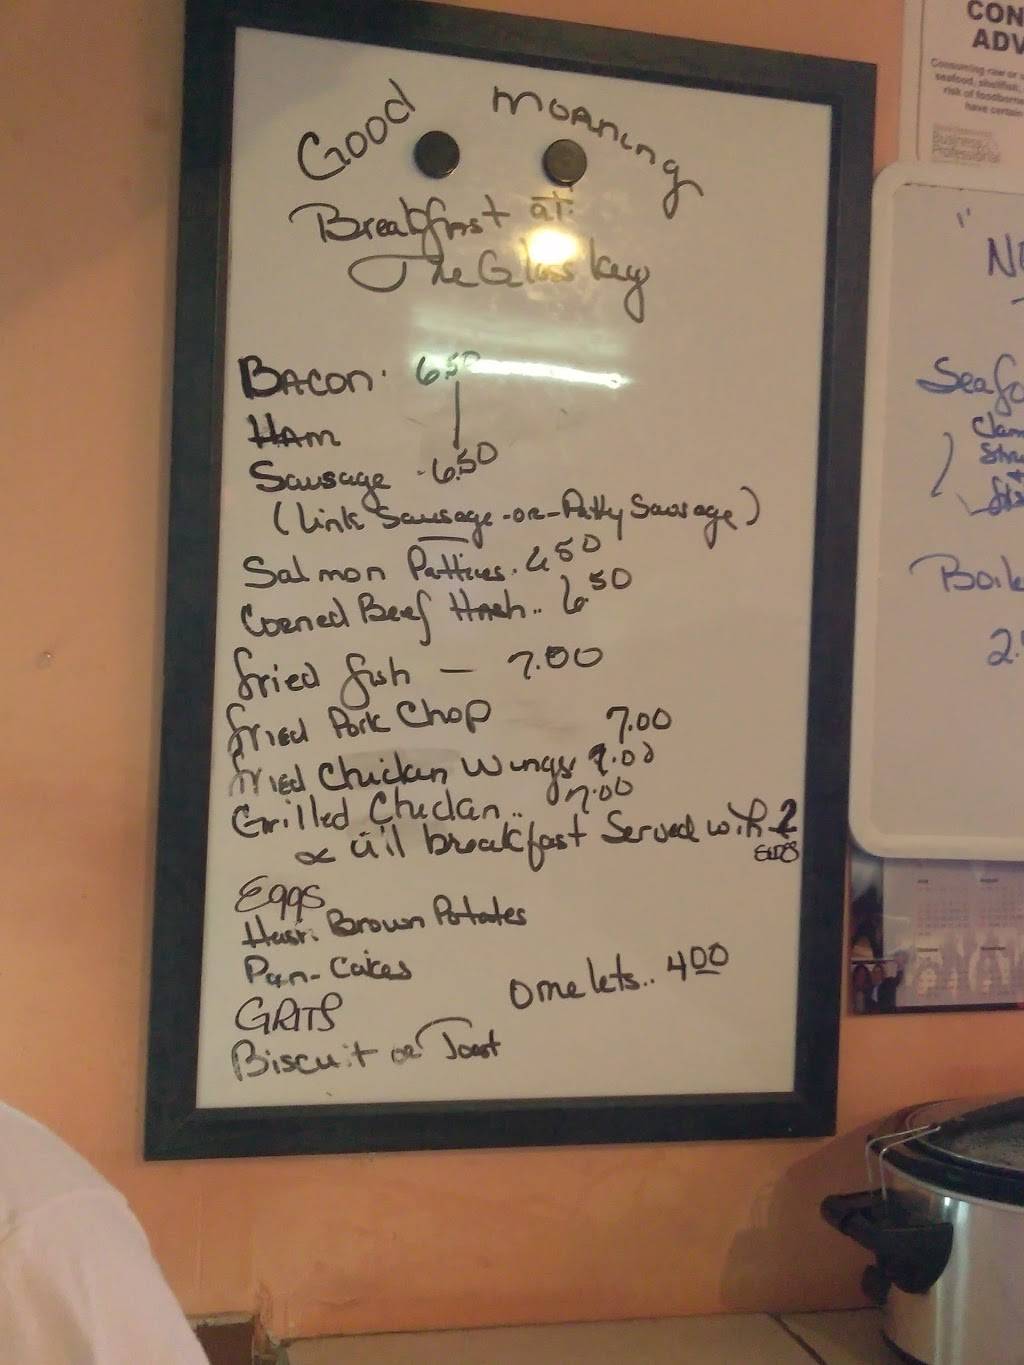 Good Morning
Breakfast at:
The Glass Key
Bacon. 6.50
Ham
Sausage - 6.50
(Link Sausage -or- Patty Sausage)
Salmon Patties. 6.50
Corned Beef Hash.. 6.50
Fried fish — 7.00
Fried Pork Chop 7.00
Fried Chicken Wings 7.00
Grilled Chicken.. 7.00
all breakfast Served with 2
Eggs
Hash Brown Potatoes
Pan-Cakes
Omelets.. 4.00
GRITS
Biscuit or Toast
CON
ADV
Consuming raw or
seafood, shellfish,
risk of foodborne
have certain
Business
Professional
Seafo
Clam
Boile
2.